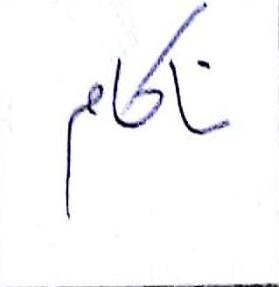 ناکام